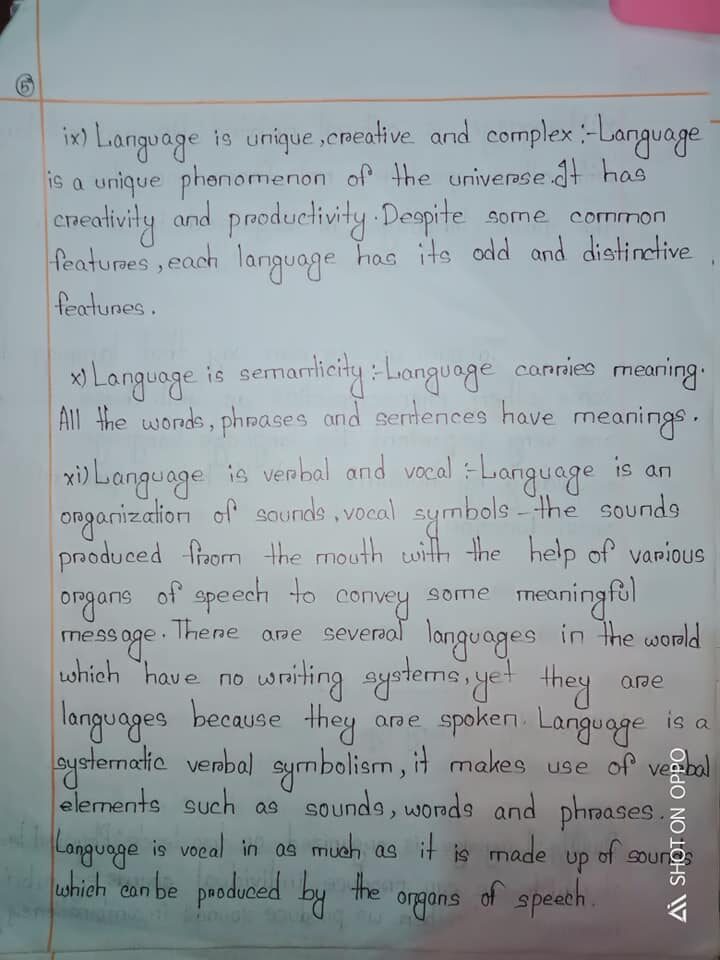 5
ix) Language is unique, creative and complex :- Language
is a unique phenomenon of the universe. It has
creativity and productivity. Despite some common
features, each language has its odd and distinctive
features.
x) Language is semanticity :- Language carries meaning.
All the words, phrases and sentences have meanings.
xi) Language is verbal and vocal :- Language is an
organization of sounds, vocal symbols - the sounds
produced from the mouth with the help of various
organs of speech to convey some meaningful
message. There are several languages in the world
which have no writing systems, yet they are
languages because they are spoken. Language is a
systematic verbal symbolism, it makes use of verbal
elements such as sounds, words and phrases.
Language is vocal in as much as it is made up of sounds
which can be produced by the organs of speech.
SHOT ON OPPO